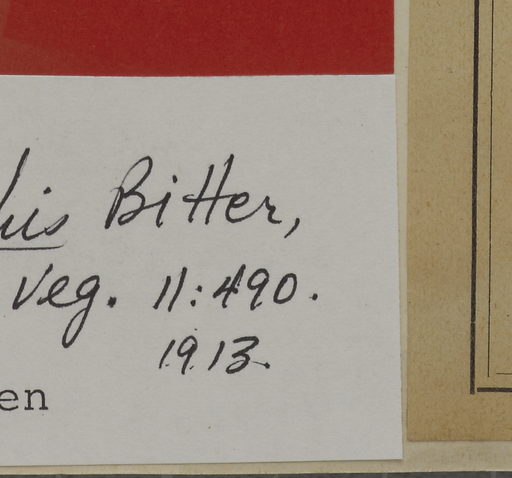 Bitter,
Veg. 11:490.
1913.
en